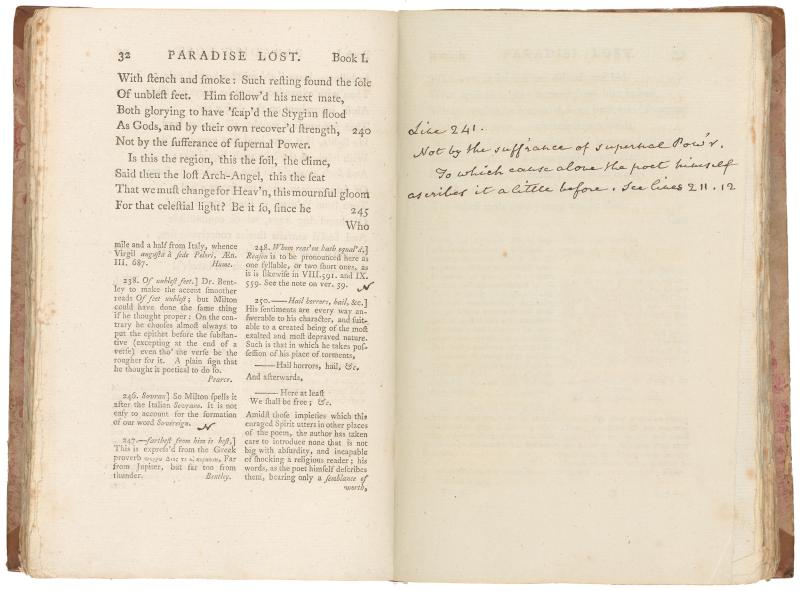 32 PARADISE LOST. Book I.
With ſtench and ſmoke: Such reſting found the ſole
Of unbleſt feet. Him follow'd his next mate,
Both glorying to have 'ſcap'd the Stygian flood
As Gods, and by their own recover'd ſtrength, 240
Not by the ſufferance of ſupernal Power.
Is this the region, this the ſoil, the clime,
Said then the loſt Arch-Angel, this the ſeat
That we muſt change for Heav'n, this mournful gloom
For that celeſtial light? Be it ſo, ſince he 245
Who
mile and a half from Italy, whence
Virgil anguſta à ſede Pelori, Æn.
III. 687. Hume.
238. Of unbleſt feet.] Dr. Bent-
ley to make the accent ſmoother
reads Of feet unbleſt; but Milton
could have done the ſame thing
if he thought proper: On the con-
trary he chooſes almoſt always to
put the epithet before the ſubſtan-
tive (excepting at the end of a
verſe) even tho' the verſe be the
rougher for it. A plain ſign that
he thought it poetical to do ſo.
Pearce.
246. Sovran] So Milton ſpells it
after the Italian Sovrano. It is not
eaſy to account for the formation
of our word Sovereign. N
247.—fartheſt from him is beſt,]
This is expreſs'd from the Greek
proverb Far
from Jupiter, but far too from
thunder. Bentley.
248. Whom reaſon hath equal'd,]
Reaſon is to be pronounced here as
one ſyllable, or two ſhort ones, as
it is likewiſe in VIII. 591. and IX.
559. See the note on ver. 39. N
250.—Hail horrors, hail, &c.]
His ſentiments are every way an-
ſwerable to his character, and ſuit-
able to a created being of the moſt
exalted and moſt depraved nature.
Such is that in which he takes poſ-
ſeſſion of his place of torments,
—Hail horrors, hail, &c.
And afterwards,
—— Here at leaſt
We ſhall be free; &c.
Amidſt thoſe impieties which this
enraged Spirit utters in other places
of the poem, the author has taken
care to introduce none that is not
big with abſurdity, and incapable
of ſhocking a religious reader; his
words, as the poet himſelf deſcribes
them, bearing only a ſemblance of
worth,
Line 241.
Not by the suff'rance of supernal Pow'r.
To which cause alone the poet himself
ascribes it a little before. See lines 211. 12